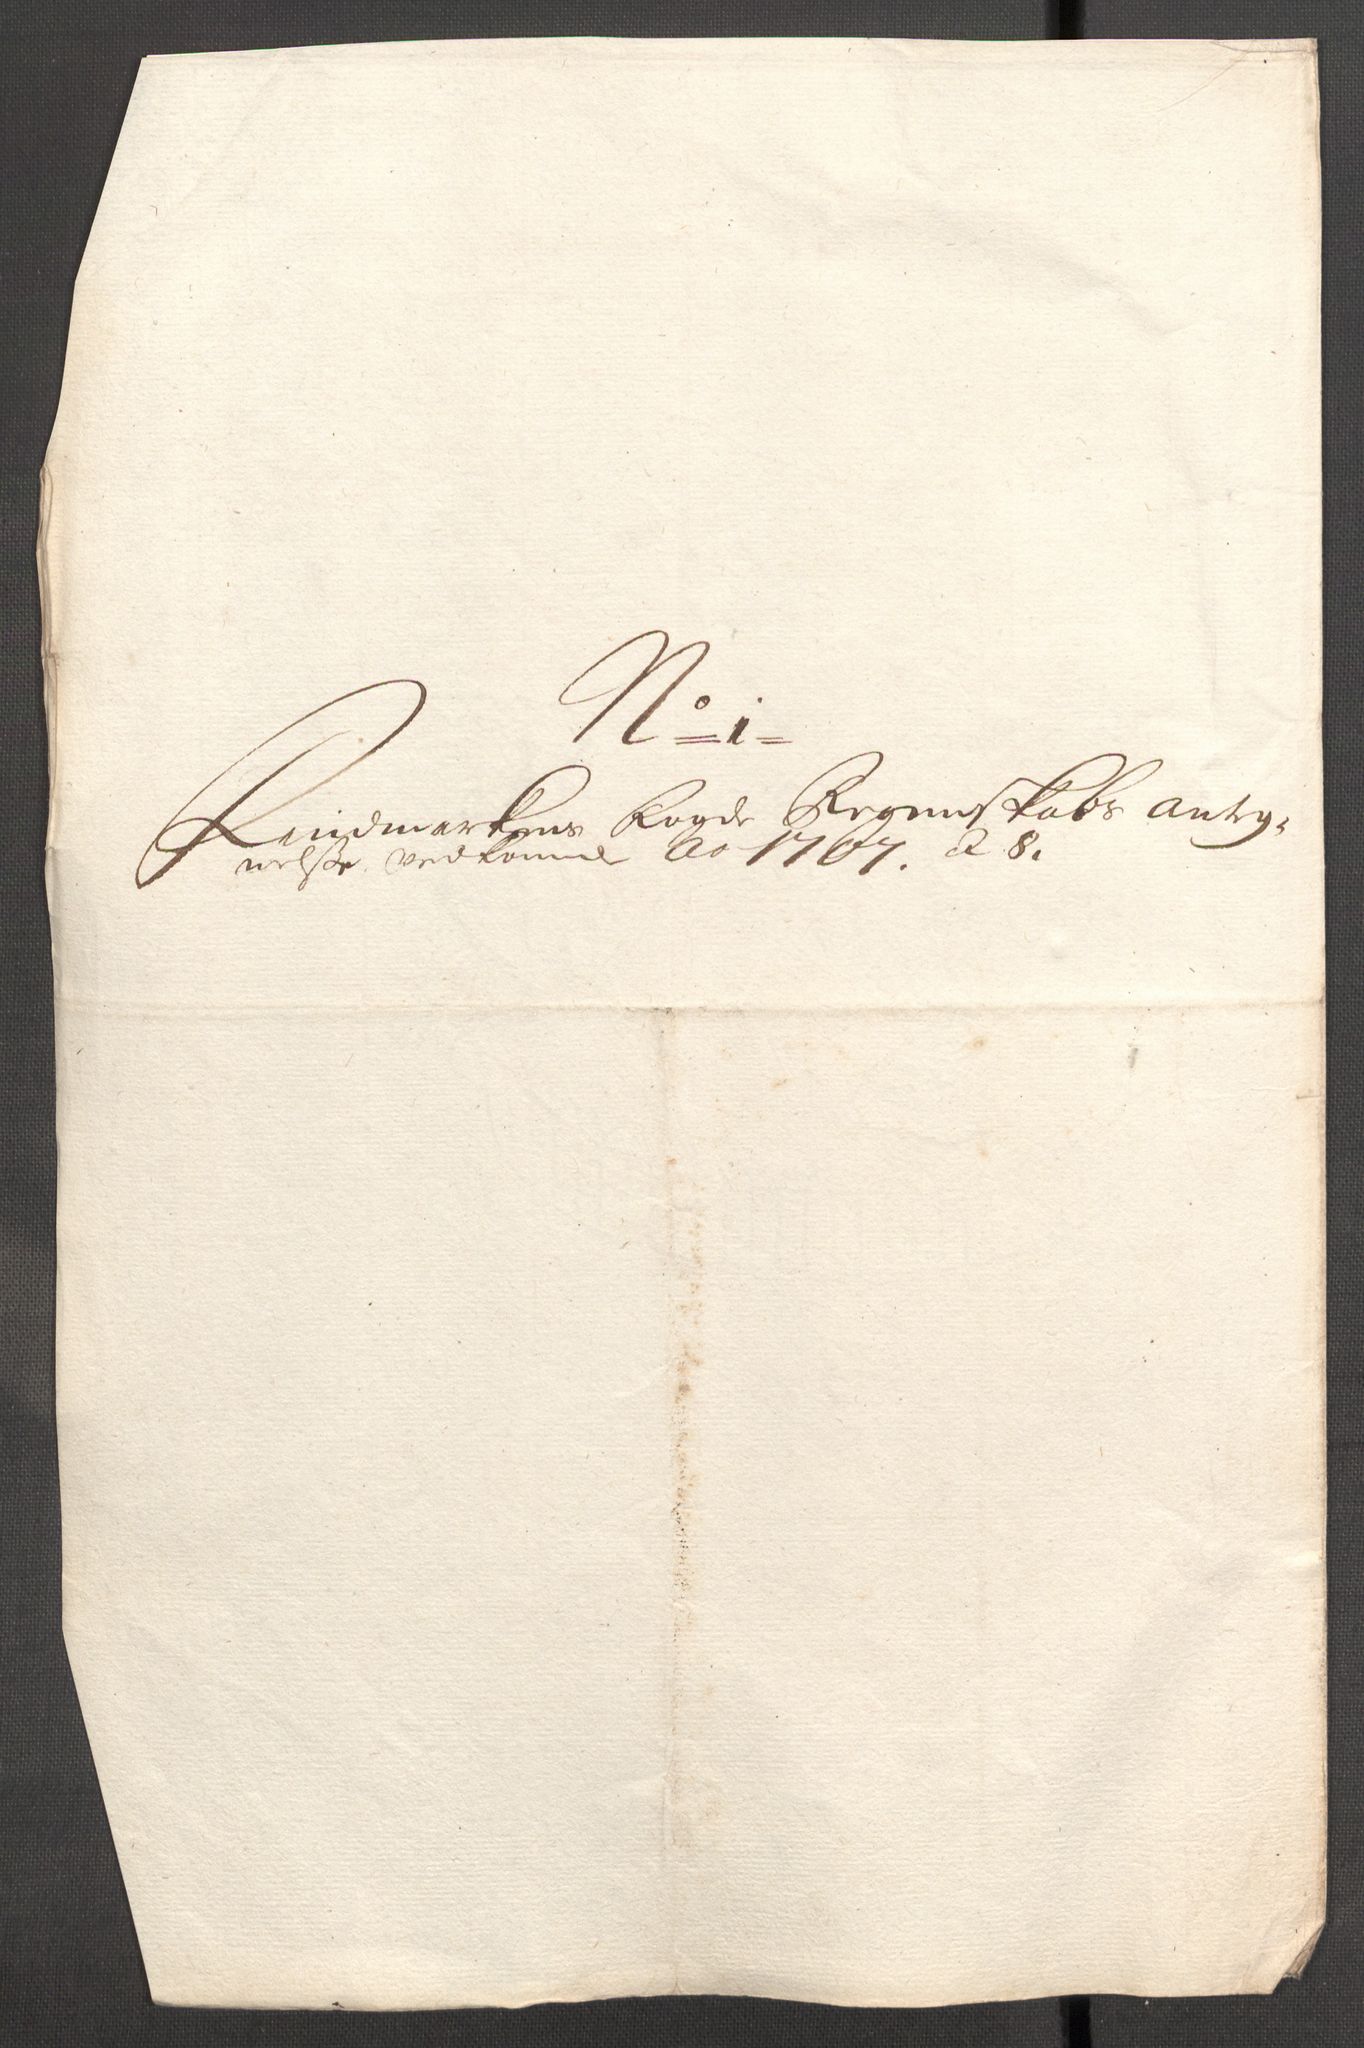 No i
Findmarkens Fogde Regenskabs anteg-
nelsse vedkomme Ao 1707. & 8.